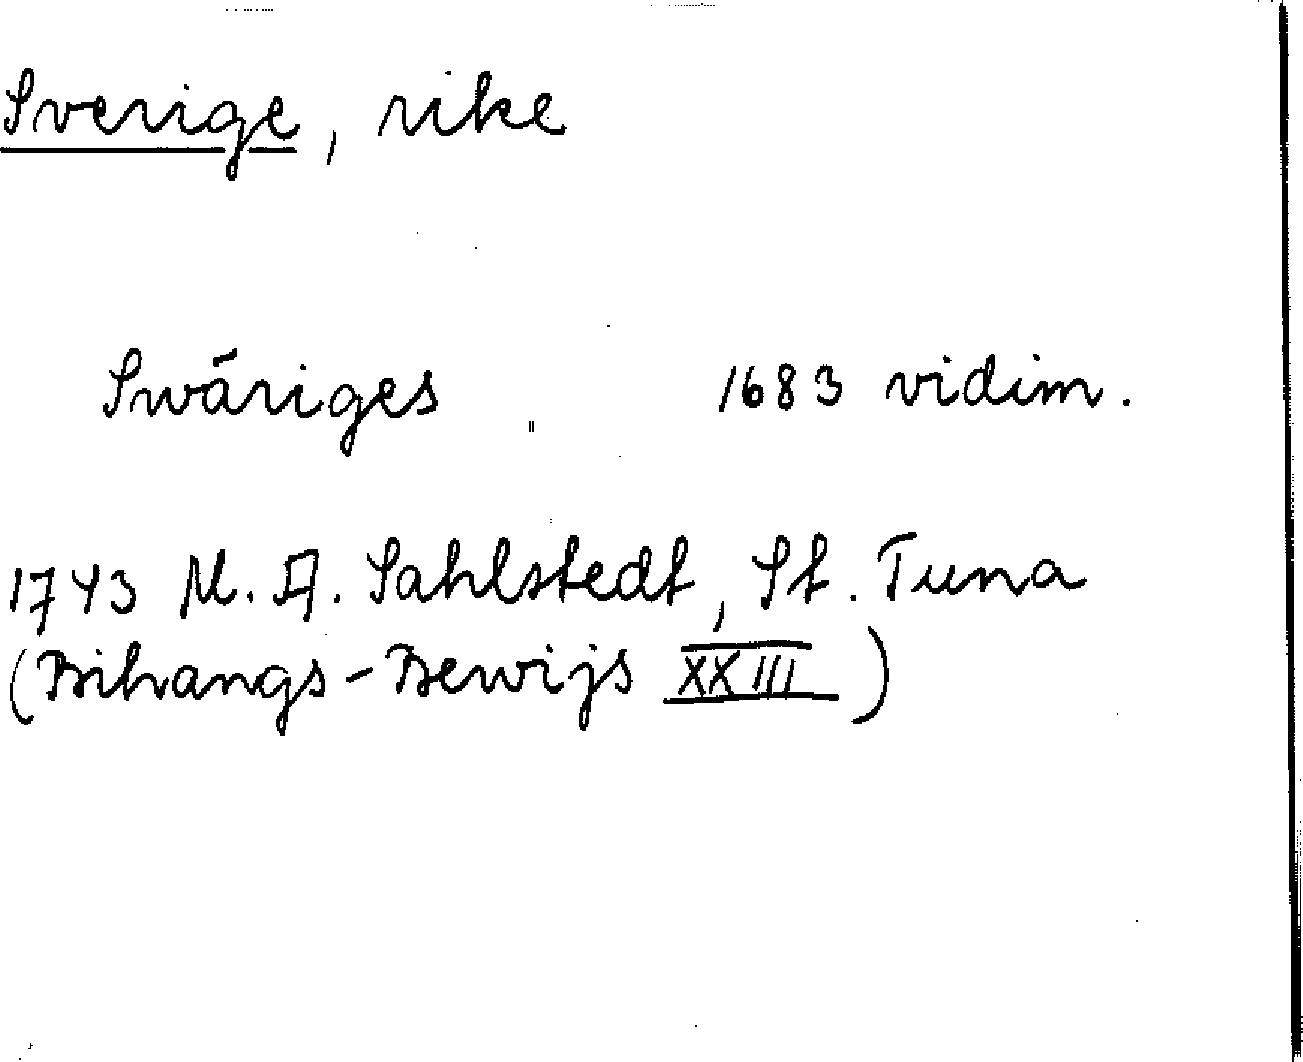 Sverige, rike
Swäriges 1683 vidim.
1743 M. A. Sahlstedt, St. Tuna
(Bihangs-Bewijs XXIII)